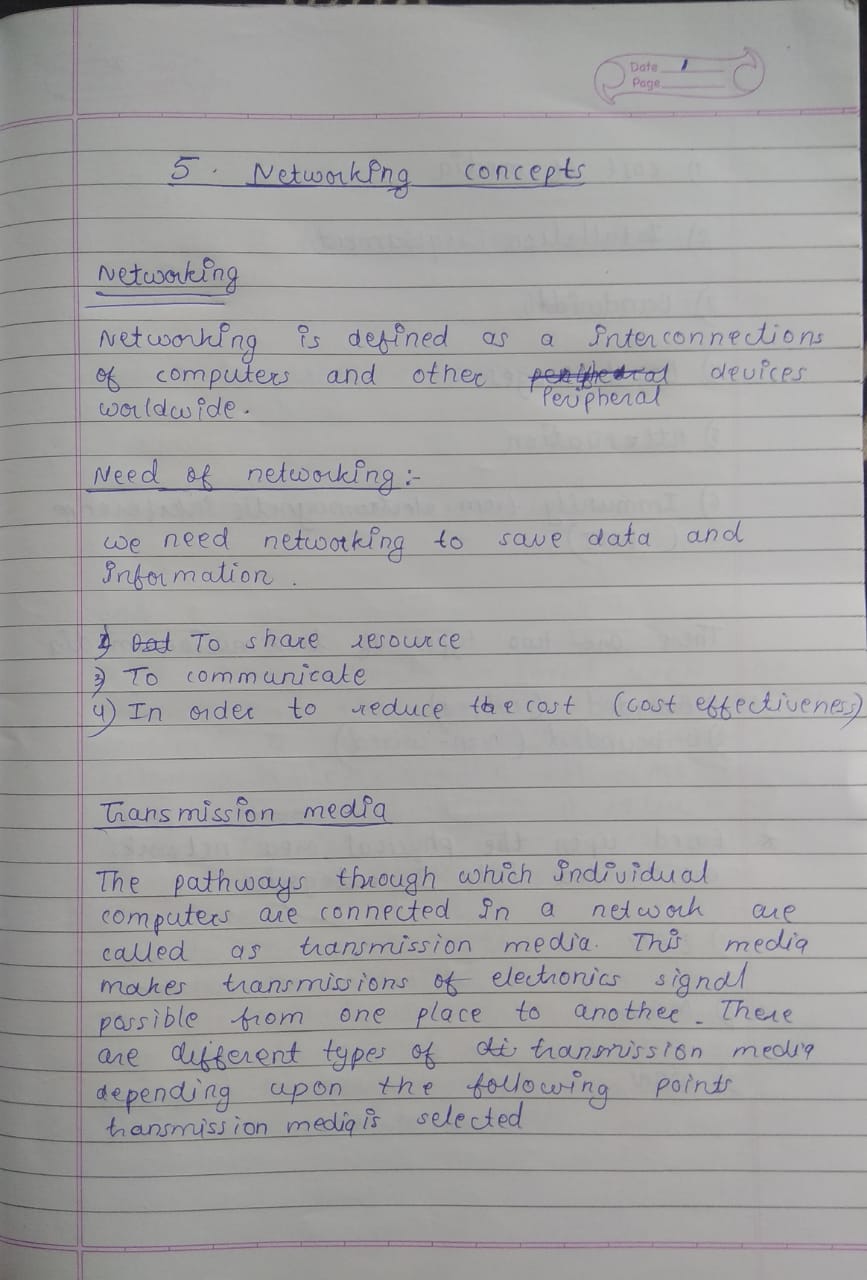 Date
Page
5. Networking concepts
Networking
Networking is defined as a interconnections
of computers and other devices
Peripheral
worldwide.
Need of networking :-
we need networking to save data and
information.
To share resource
3) To communicate
4) In order to reduce the cost (cost effectiveness)
Transmission media
The pathways through which individual
computers are connected in a network are
called as transmission media. This media
makes transmissions of electronics signal
possible from one place to another. There
are different types of transmission media
depending upon the following points
transmission media is selected